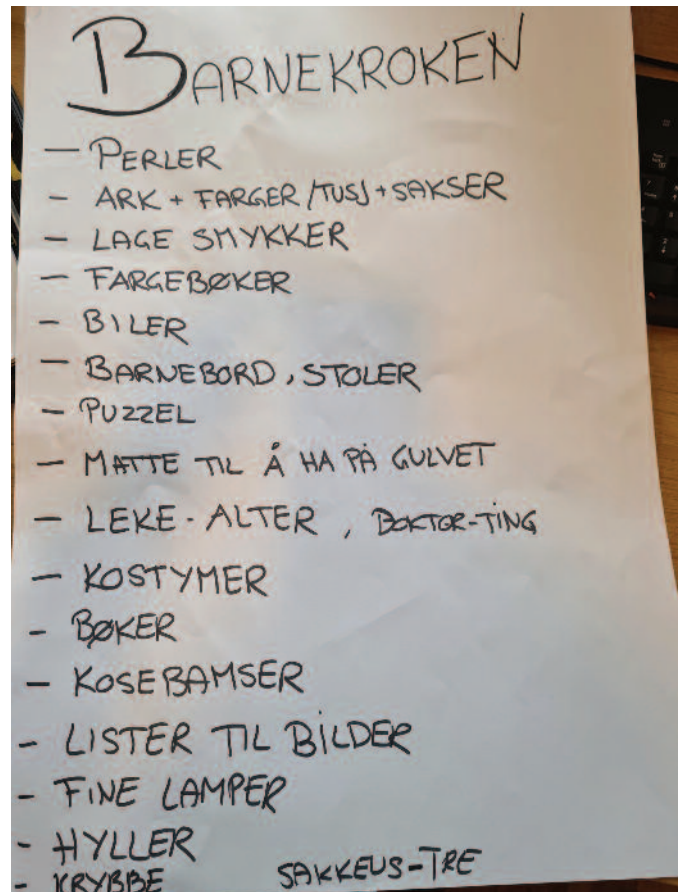 BARNEKROKEN
- PERLER
- ARK + FARGER /TUSJ + SAKSER
- LAGE SMYKKER
- FARGEBØKER
- BILER
- BARNEBORD, STOLER
- PUZZEL
- MATTE TIL Å HA PÅ GULVET
- LEKE-ALTER, DOKTOR-TING
- KOSTYMER
- BØKER
- KOSEBAMSER
- LISTER TIL BILDER
- FINE LAMPER
- HYLLER
- KRYBBE SAKKEUS-TRE